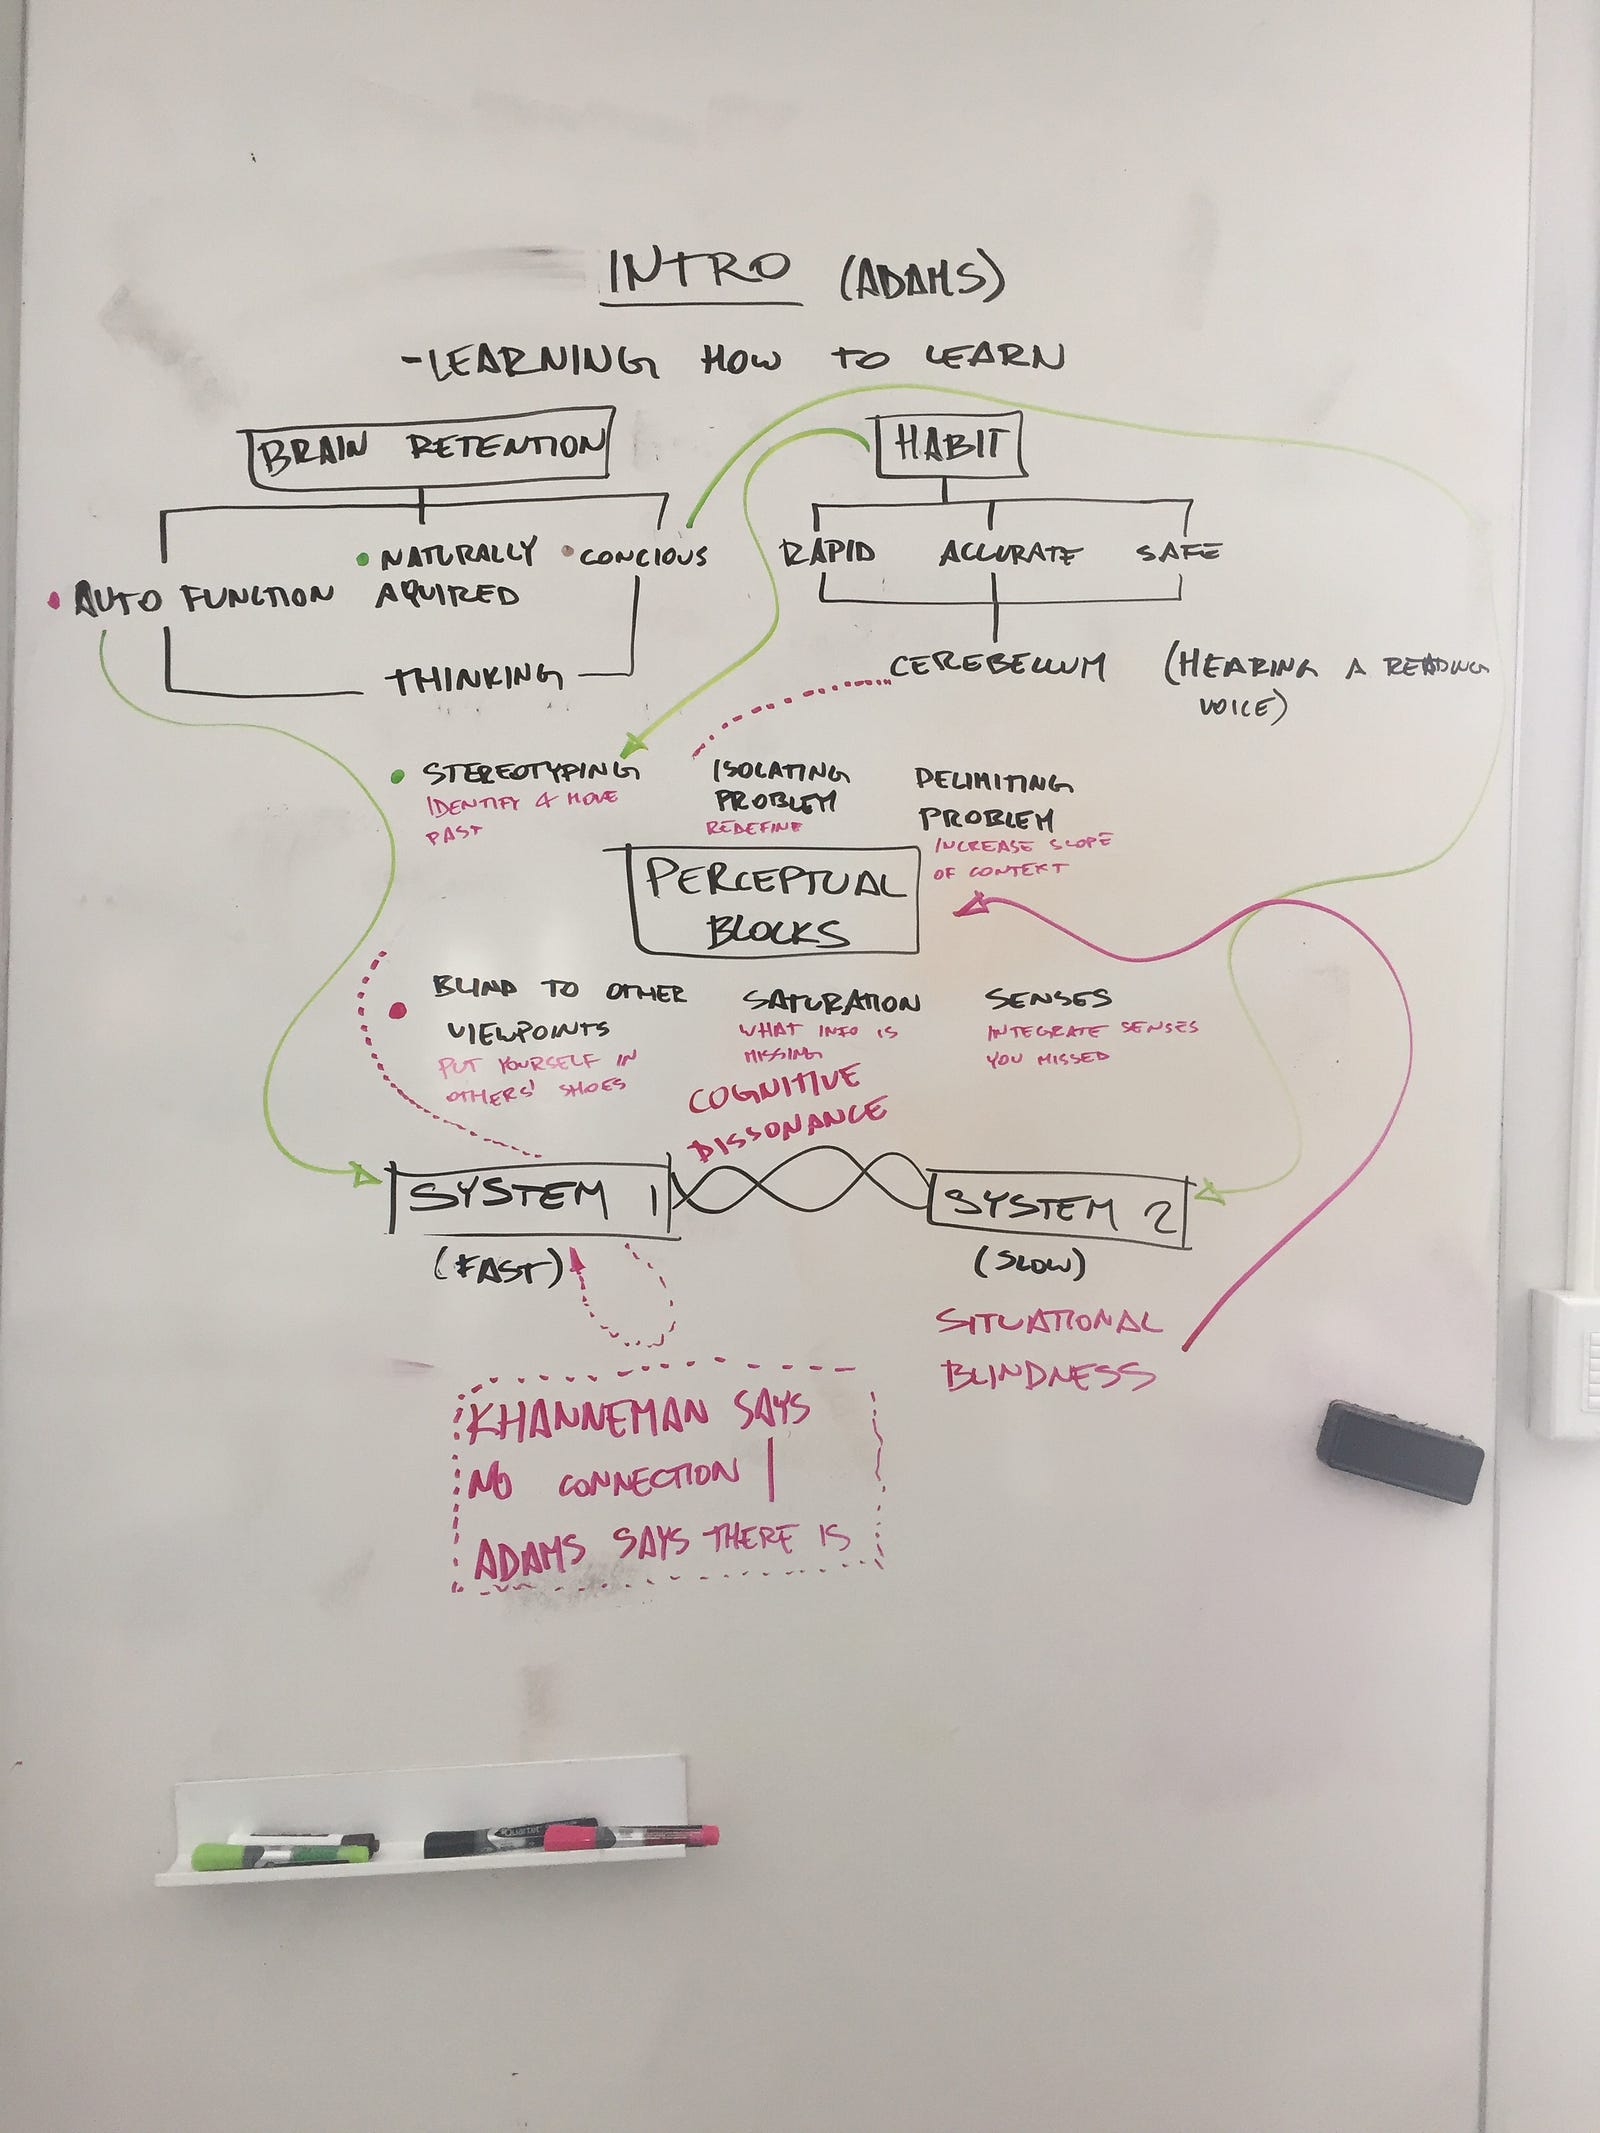 INTRO (ADAMS)
-LEARNING HOW TO LEARN
BRAIN RETENTION
HABIT
NATURALLY
AQUIRED
CONCIOUS
AUTO FUNCTION
THINKING
RAPID
ACCURATE
SAFE
CEREBELLUM
(HEARING A READING
VOICE)
STEREOTYPING
IDENTIFY & MOVE
PAST
ISOLATING
PROBLEM
REDEFINE
DELIMITING
PROBLEM
INCREASE SCOPE
OF CONTEXT
PERCEPTUAL
BLOCKS
BLIND TO OTHER
VIEWPOINTS
PUT YOURSELF IN
OTHERS' SHOES
SATURATION
WHAT INFO IS
MISSING
SENSES
INTEGRATE SENSES
YOU MISSED
COGNITIVE
DISSONANCE
SYSTEM 1
(FAST)
SYSTEM 2
(SLOW)
SITUATIONAL
BLINDNESS
KHANNEMAN SAYS
NO CONNECTION |
ADAMS SAYS THERE IS
Quartet